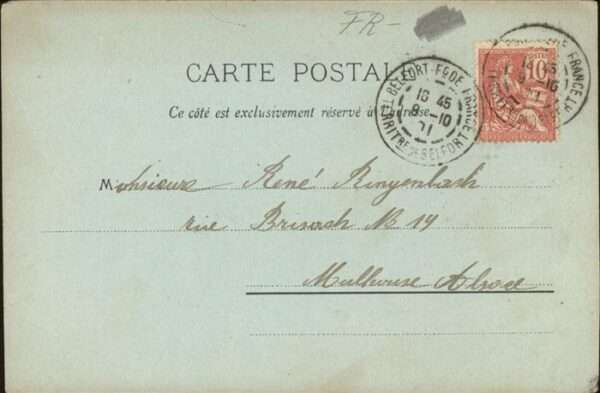 FR-
CARTE POSTALE
Ce côté est exclusivement réservé à l'adresse
BELFORT-FG DE FRANCE
16 45
9 -10
01
TERRITRE DE BELFORT
POSTES
10
Monsieur René Ringenbach
rue Brisach N 19
Mulhouse Alsace